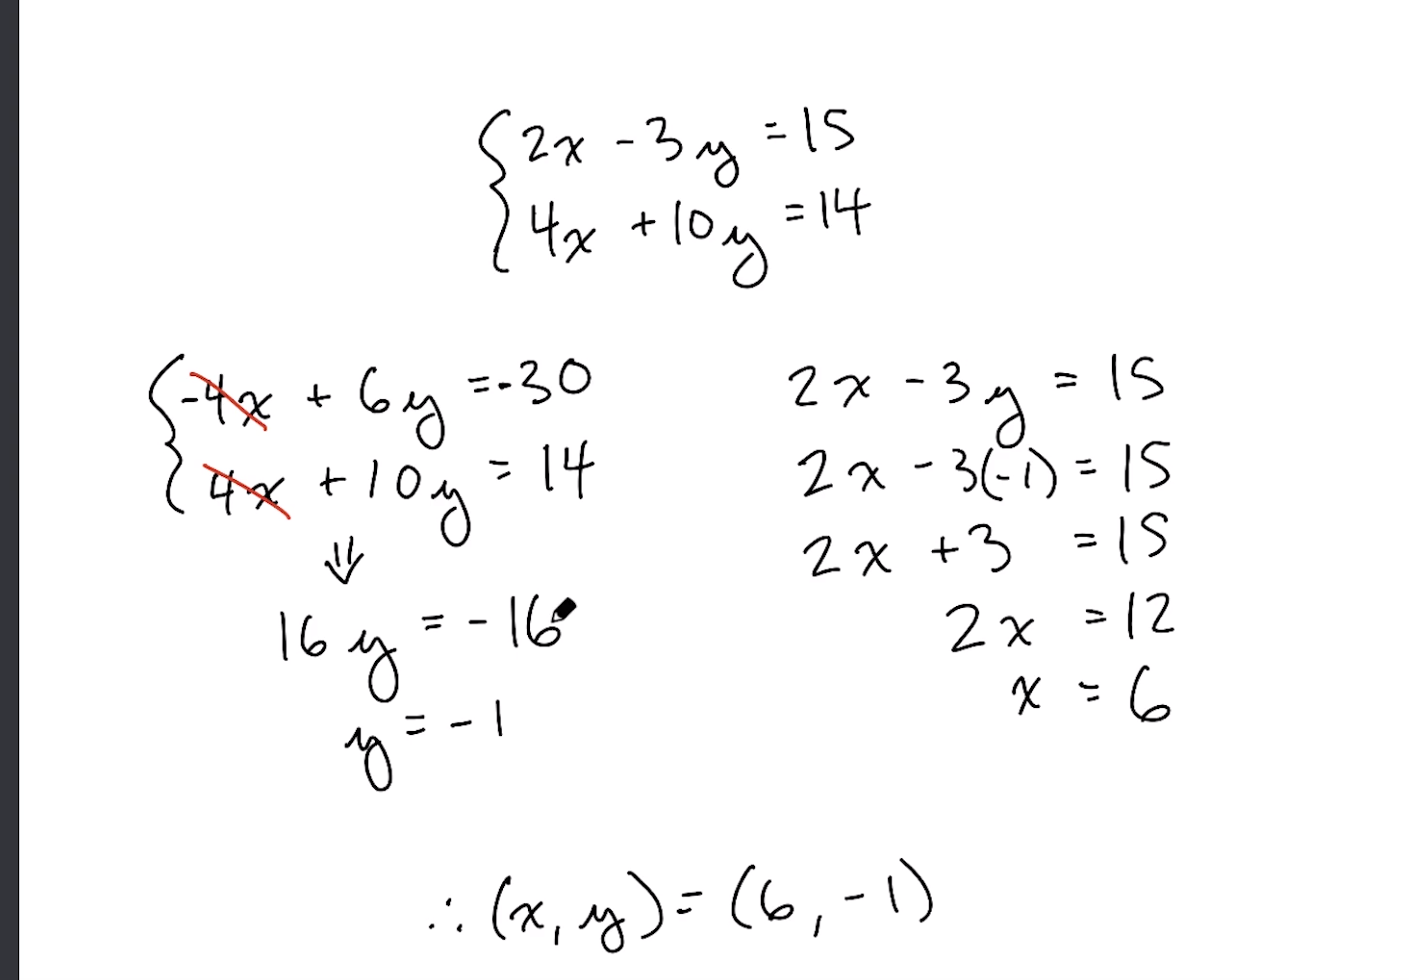 2x - 3y = 15
4x + 10y = 14
-4x + 6y = -30
4x + 10y = 14
⇓
16y = -16
y = -1
2x - 3y = 15
2x - 3(-1) = 15
2x + 3 = 15
2x = 12
x = 6
∴ (x, y) = (6, -1)